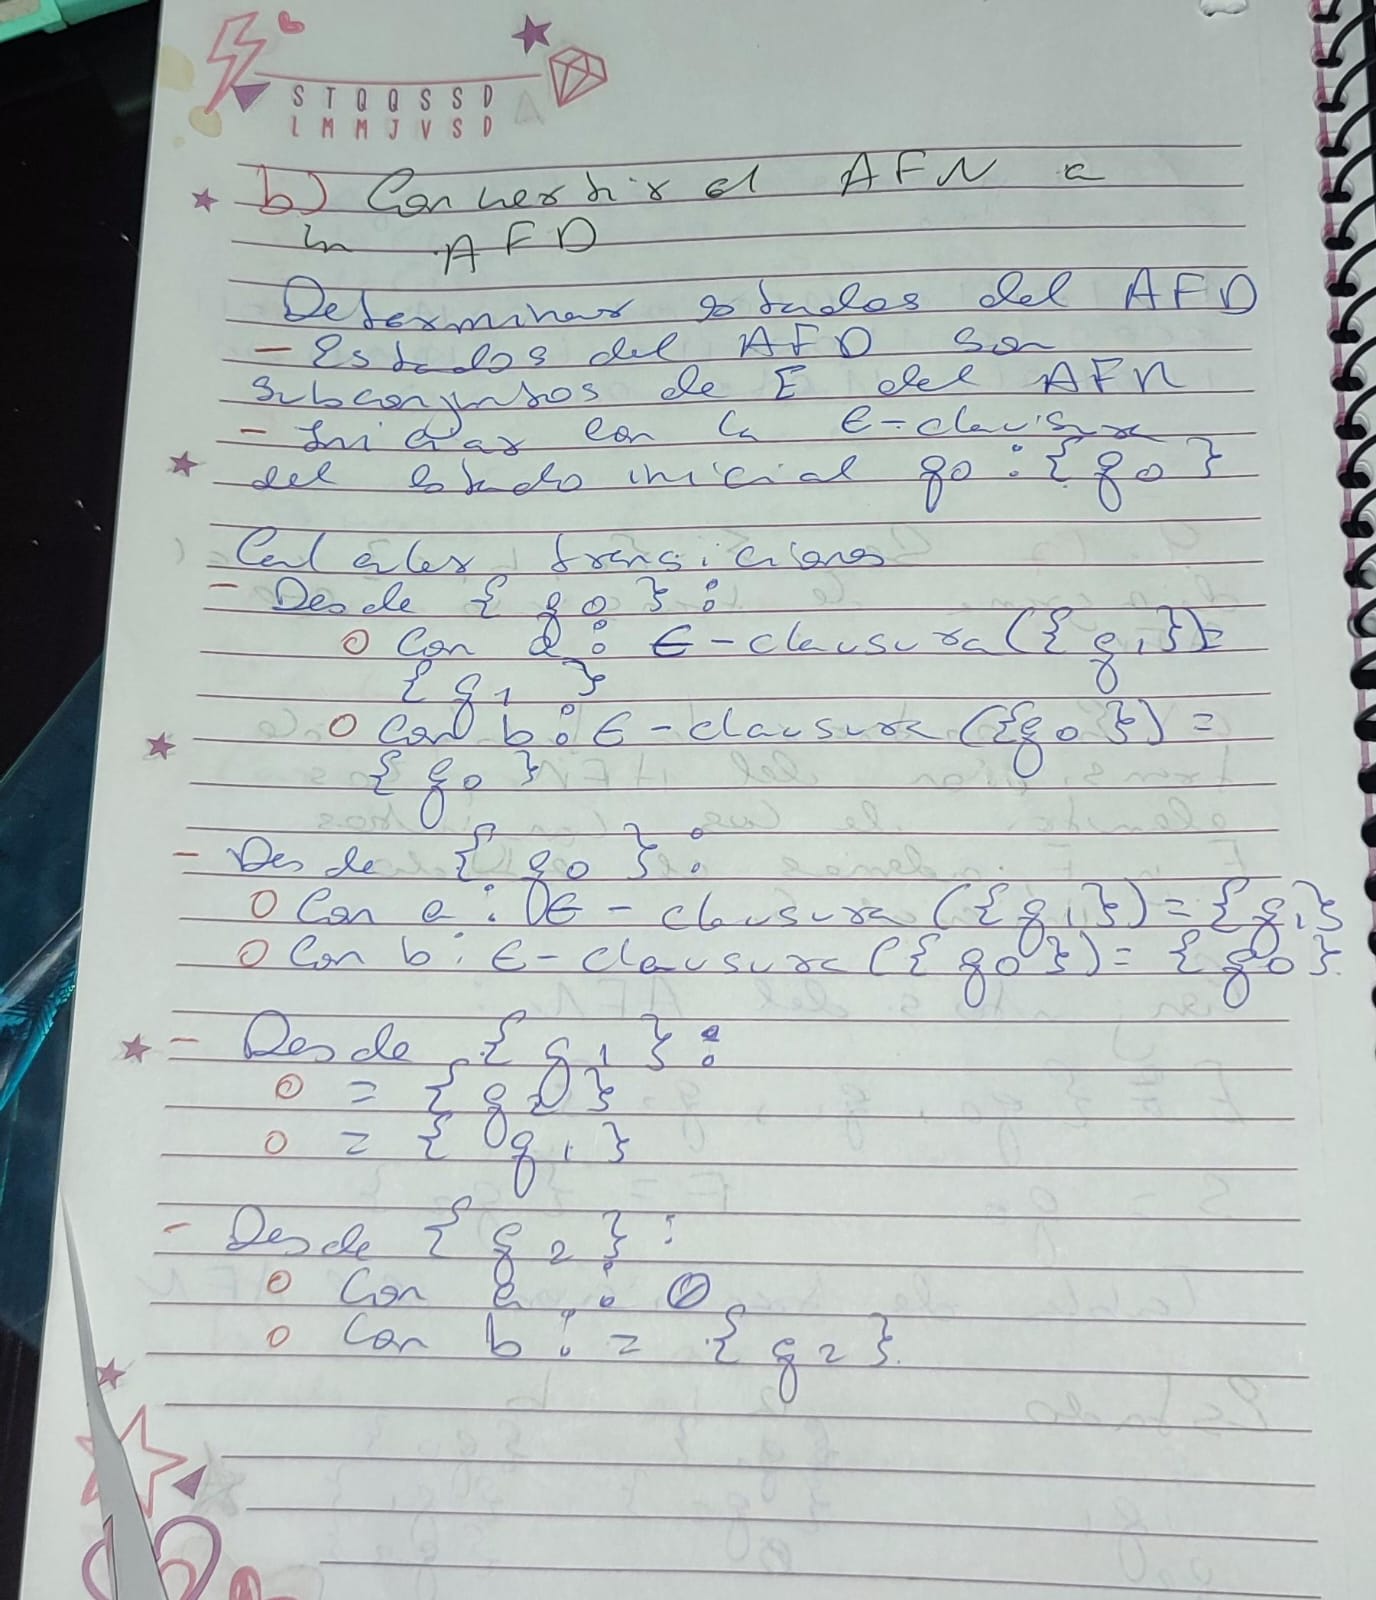 S T Q Q S S D
L M M J V S D
b) Convertir el AFN a
un AFD
Determinar estados del AFD
- Estados del AFD son
subconjuntos de E del AFN
- Iniciar con la ε-clausura
del estado inicial q0 : {q0}
Calcular transiciones
- Desde {q0} :
o Con a : ε-clausura({q1})=
{q1}
o Con b : ε-clausura({q0}) =
{q0}
- Desde {q0} :
o Con a : ε-clausura({q1})={q1}
o Con b : ε-clausura({q0})= {q0}.
- Desde {q1} :
o = {q2}
o = {q1}
- Desde {q2} :
o Con a : Ø
o Con b : = {q2}.